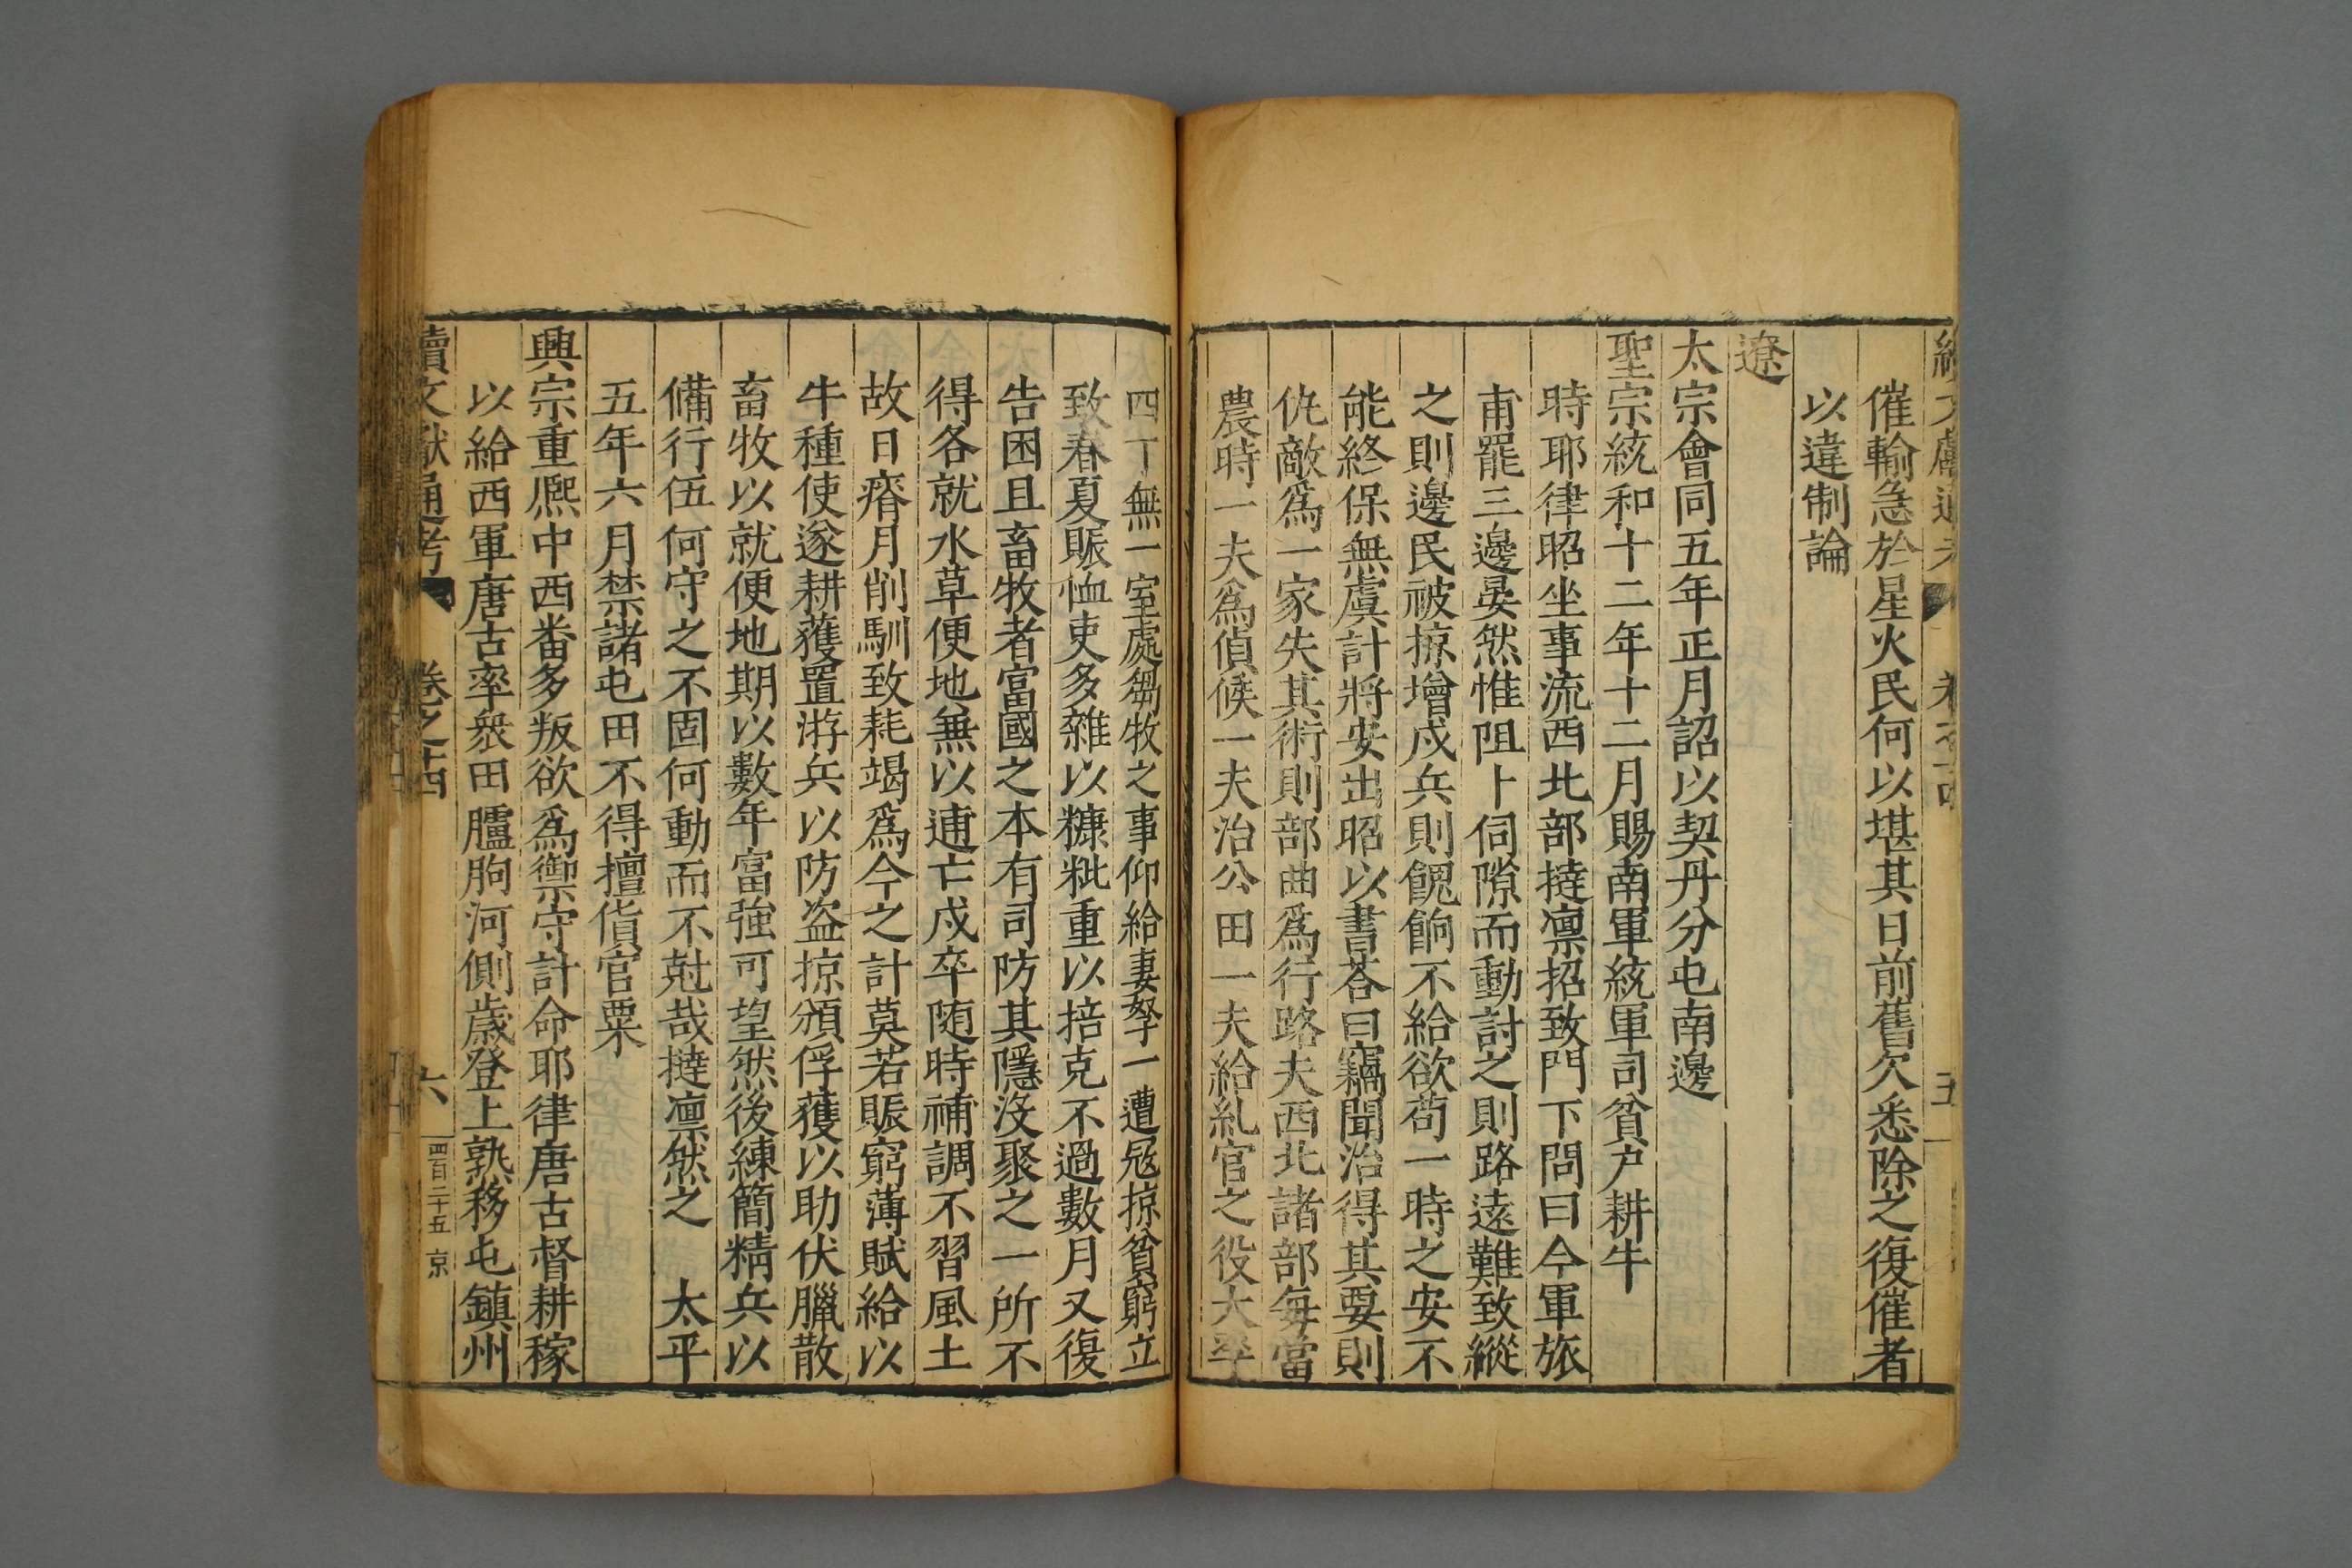 催輸急於星火民何以堪其日前舊欠悉除之復催者
以違制論
遼
太宗會同五年正月詔以契丹分屯南邊
聖宗統和十二年十二月賜南軍統軍司貧户耕牛
時耶律昭坐事流西北部撻凛招致門下問曰今軍旅
甫罷三邊晏然惟阻卜伺隙而動討之則路遠難致縱
之則邊民被掠增戍兵則餽餉不給欲苟一時之安不
能終保無虞計將安出昭以書荅曰竊聞治得其要則
仇敵爲一家失其術則部曲爲行路夫西北諸部每當
農時一夫爲偵候一夫治公田一夫給糺官之役大率
四丁無一室處芻牧之事仰給妻孥一遭冦掠貧窮立
致春夏賑恤吏多雜以糠粃重以掊克不過數月又復
告困且畜牧者富國之本有司防其隱沒聚之一所不
得各就水草便地無以逋亡戍卒随時補調不習風土
故日瘠月削馴致耗竭爲今之計莫若賑窮薄賦給以
牛種使遂耕獲置游兵以防盗掠頒俘獲以助伏臘散
畜牧以就便地期以數年富強可望然後練簡精兵以
備行伍何守之不固何動而不尅哉撻凛然之　太平
五年六月禁諸屯田不得擅貨官粟
興宗重熈中西畨多叛欲爲禦守計命耶律唐古督耕稼
以給西軍唐古率衆田臚朐河側歲登上熟移屯鎮州
續文獻通考　卷之十四　六　四百二十五　京